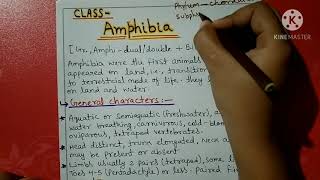 Phylum - chordata
subph
CLASS-
Amphibia
[Gr. Amphi - dual/double + Bi
Amphibia were the first animals
appeared on land, i.e., transition
to terrestrial mode of life. they s
on land and water.
General characters:-
Aquatic or Semiaquatic (freshwater), a
water breathing, carnivorous, cold-bloo
oviparous, tetrapod vertebrates.
Head distinct, trunk elongated, Neck a
may be present or absent
Limbs usually 2 pairs (tetrapod), some l
Toes 4-5 (Pentadactyle) or less. Paired fin
KINEMASTER